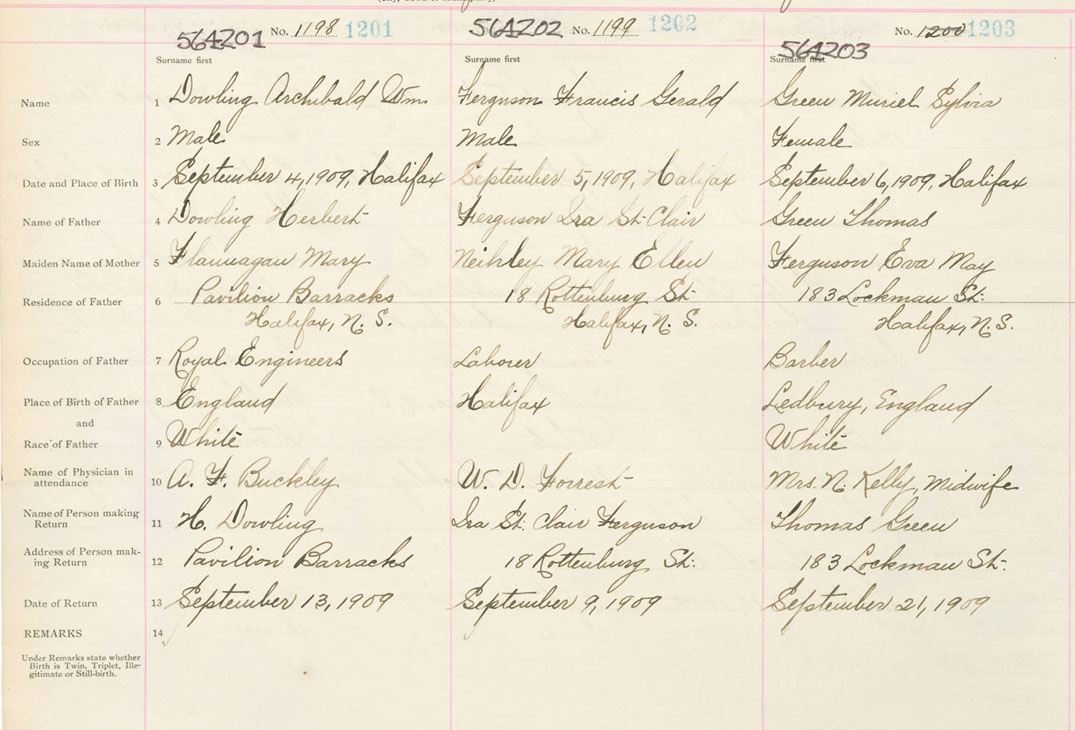 No. 1198 1201 No. 1199 1202 No. 1200 1203
564201 564202 564203
Surname first Surname first Surname first
Name 1 Dowling Archibald Wm. Ferguson Francis Gerald Green Muriel Sylvia
Sex 2 Male Male Female
Date and Place of Birth 3 September 4, 1909, Halifax September 5, 1909, Halifax September 6, 1909, Halifax
Name of Father 4 Dowling Herbert Ferguson Ira St. Clair Green Thomas
Maiden Name of Mother 5 Flannagan Mary Neihley Mary Ellen Ferguson Eva May
Residence of Father 6 Pavilion Barracks 18 Rottenburg St. 183 Lockman St.
Halifax, N. S. Halifax, N. S. Halifax, N. S.
Occupation of Father 7 Royal Engineers Laborer Barber
Place of Birth of Father 8 England Halifax Ledbury, England
and
Race of Father 9 White White
Name of Physician in
attendance 10 A. F. Buckley W. D. Forrest Mrs. N. Kelly, Midwife
Name of Person making
Return 11 H. Dowling Ira St. Clair Ferguson Thomas Green
Address of Person mak-
ing Return 12 Pavilion Barracks 18 Rottenburg St. 183 Lockman St.
Date of Return 13 September 13, 1909 September 9, 1909 September 21, 1909
REMARKS 14
Under Remarks state whether
Birth is Twin, Triplet, Ille-
gitimate or Still-birth.